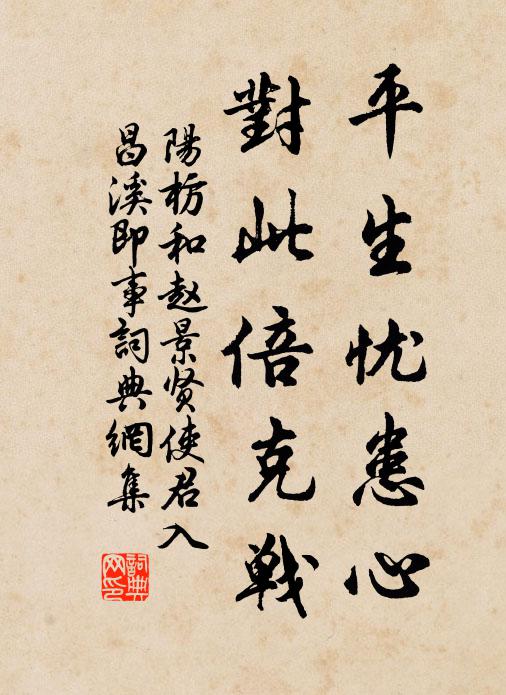 平生忧患心
對此倍克戰
陽枋和赵景贤使君入
昌溪即事詞典網集
詞典网印